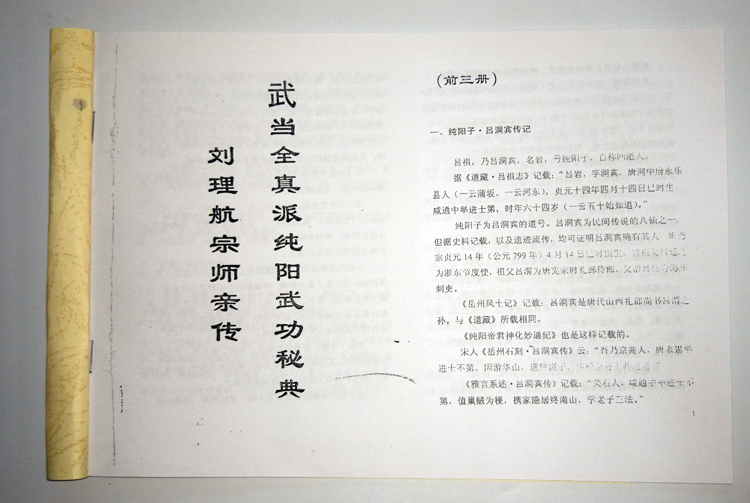 武当全真派纯阳武功秘典
刘理航宗师亲传
（前三册）
一、纯阳子·吕洞宾传记
吕祖，乃吕洞宾，名岩，号纯阳子，自称回道人。
据《道藏·吕祖志》记载：“吕岩，字洞宾，唐河中府永乐
县人（一云蒲坂、一云河东），贞元十四年四月十四日巳时生
咸通中举进士第，时年六十四岁（一云五十始知道）。”
纯阳子为吕洞宾的道号。吕洞宾为民间传说的八仙之一
但据史料记载，以及遗迹流传，均可证明吕洞宾确有其人
宗贞元14年（公元799年）4月14日巳时出生，曾祖
为浙东节度使，祖父吕渭为唐宪宗时礼部侍郎，父
刺史。
《岳州风土记》记载：吕洞宾是唐代山西礼部尚书吕渭之
孙。与《道藏》所载相同。
《纯阳帝君神化妙通纪》也是这样记载的。
宋人《岳州石刻·吕洞宾传》云：“吾乃京兆人，唐末累举
进士不第，因游华山，遇
《雅言系述·吕洞宾传》记载：“关右人，咸通中举进士不
第，值巢贼为梗，携家隐居终南山，学老子之法。”
1